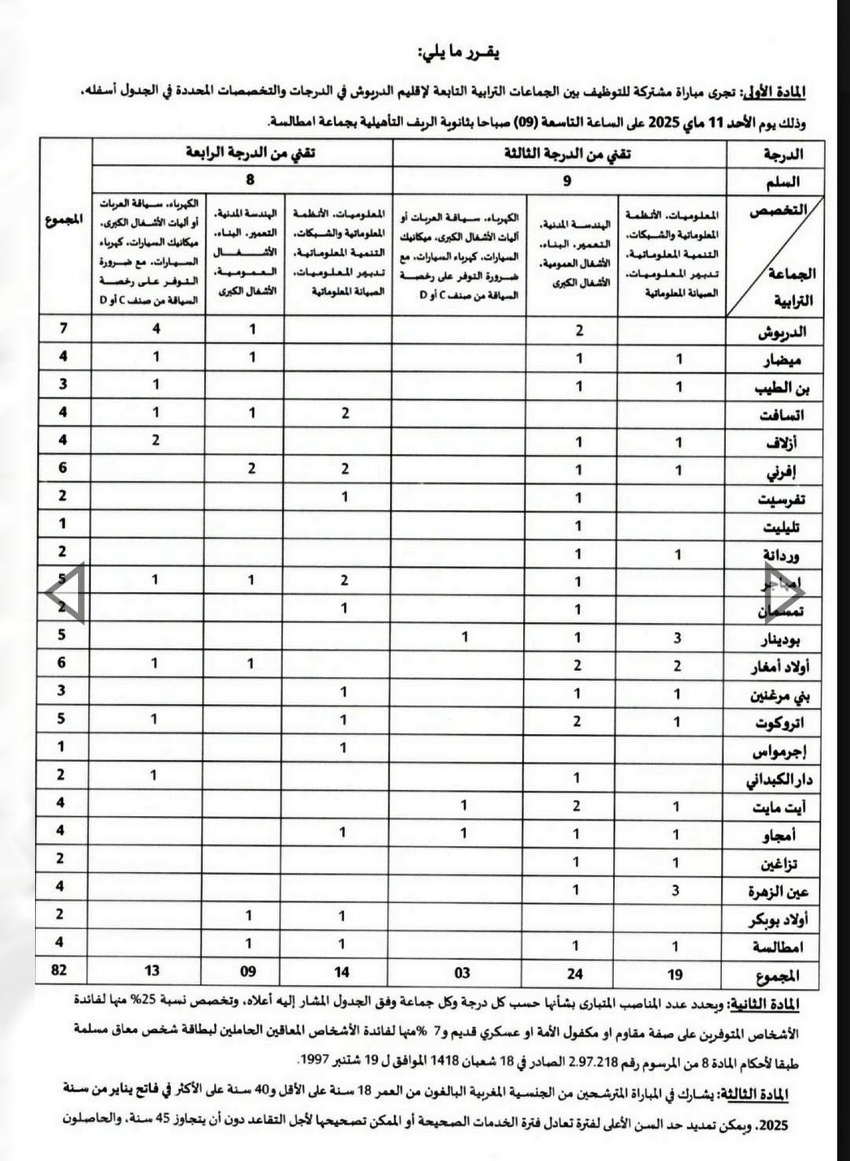 يقـرر ما يلي:
المادة الأولى: تجرى مباراة مشتركة للتوظيف بين الجماعات الترابية التابعة لإقليم الدريوش في الدرجات والتخصصات المحددة في الجدول أسفله،
وذلك يوم الأحد 11 ماي 2025 على الساعة التاسعة (09) صباحا بثانوية الريف التأهيلية بجماعة امطالسة.
الدرجة تقني من الدرجة الثالثة تقني من الدرجة الرابعة المجموع
السلم 9 8
التخصص
الجماعة الترابية
المعلوميات، الأنظمة
المعلوماتية والشبكات،
التنمية المعلوماتية،
تدبير المعلوميات،
الصيانة المعلوماتية
الهندسة المدنية،
التعمير، البناء،
الأشغال العمومية،
الأشغال الكبرى
الكهرباء، سياقة العربات أو
آليات الأشغال الكبرى، ميكانيك
السيارات، كهرباء السيارات، مع
ضرورة التوفر على رخصة
السياقة من صنف C أو D
المعلوميات، الأنظمة
المعلوماتية والشبكات،
التنمية المعلوماتية،
تدبير المعلوميات،
الصيانة المعلوماتية
الهندسة المدنية،
التعمير، البناء،
الأشغال
العمومية،
الأشغال الكبرى
الكهرباء، سياقة العربات
أو آليات الأشغال الكبرى،
ميكانيك السيارات، كهرباء
السيارات، مع ضرورة
التوفر على رخصة
السياقة من صنف C أو D
الدريوش 2 1 4 7
ميضار 1 1 1 1 4
بن الطيب 1 1 1 3
اتسافت 2 1 1 4
أزلاف 1 1 2 4
إفرني 1 1 2 2 6
تفرسيت 1 1 2
تليليت 1 1
وردانة 1 1 2
امهاجر 1 2 1 1 5
تمسمان 1 1 2
بودينار 3 1 1 5
أولاد أمغار 2 2 1 1 6
بني مرغنين 1 1 1 3
اتروكوت 1 2 1 1 5
إجرمواس 1 1
دار الكبداني 1 1 2
آيت مايت 1 2 1 4
أمجاو 1 1 1 1 4
تزاغين 1 1 2
عين الزهرة 3 1 4
أولاد بوبكر 1 1 2
امطالسة 1 1 1 1 4
المجموع 19 24 03 14 09 13 82
المادة الثانية: ويحدد عدد المناصب المتبارى بشأنها حسب كل درجة وكل جماعة وفق الجدول المشار إليه أعلاه، وتخصص نسبة 25% منها لفائدة
الأشخاص المتوفرين على صفة مقاوم او مكفول الأمة او عسكري قديم و7 %منها لفائدة الأشخاص المعاقين الحاملين لبطاقة شخص معاق مسلمة
طبقا لأحكام المادة 8 من المرسوم رقم 2.97.218 الصادر في 18 شعبان 1418 الموافق ل 19 شتنبر 1997.
المادة الثالثة: يشارك في المباراة المترشحين من الجنسية المغربية البالغون من العمر 18 سنة على الأقل و40 سنة على الأكثر في فاتح يناير من سنة
2025، ويمكن تمديد حد السن الأعلى لفترة تعادل فترة الخدمات الصحيحة أو الممكن تصحيحها لأجل التقاعد دون أن يتجاوز 45 سنة، والحاصلون